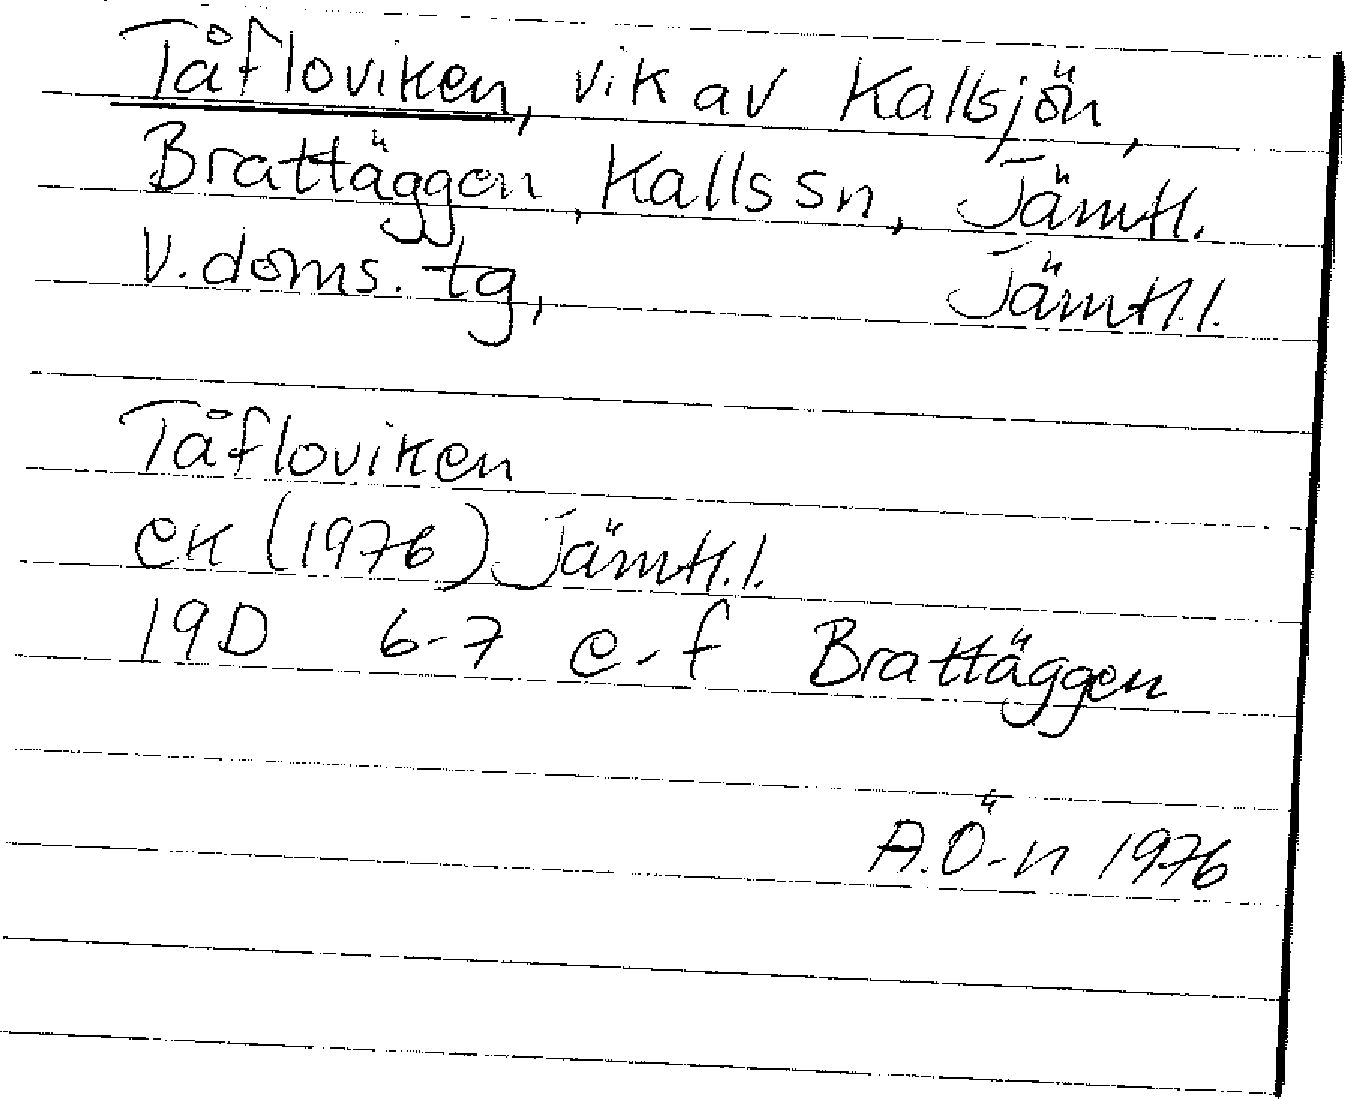 Tåfloviken, vik av Kallsjön,
Brattäggen, Kalls sn, Jämtl.
V. doms. tg, Jämtl.l.
Tåfloviken
ek (1976) Jämtl.l.
19D 6-7 e-f Brattäggen
A.Ö-n 1976